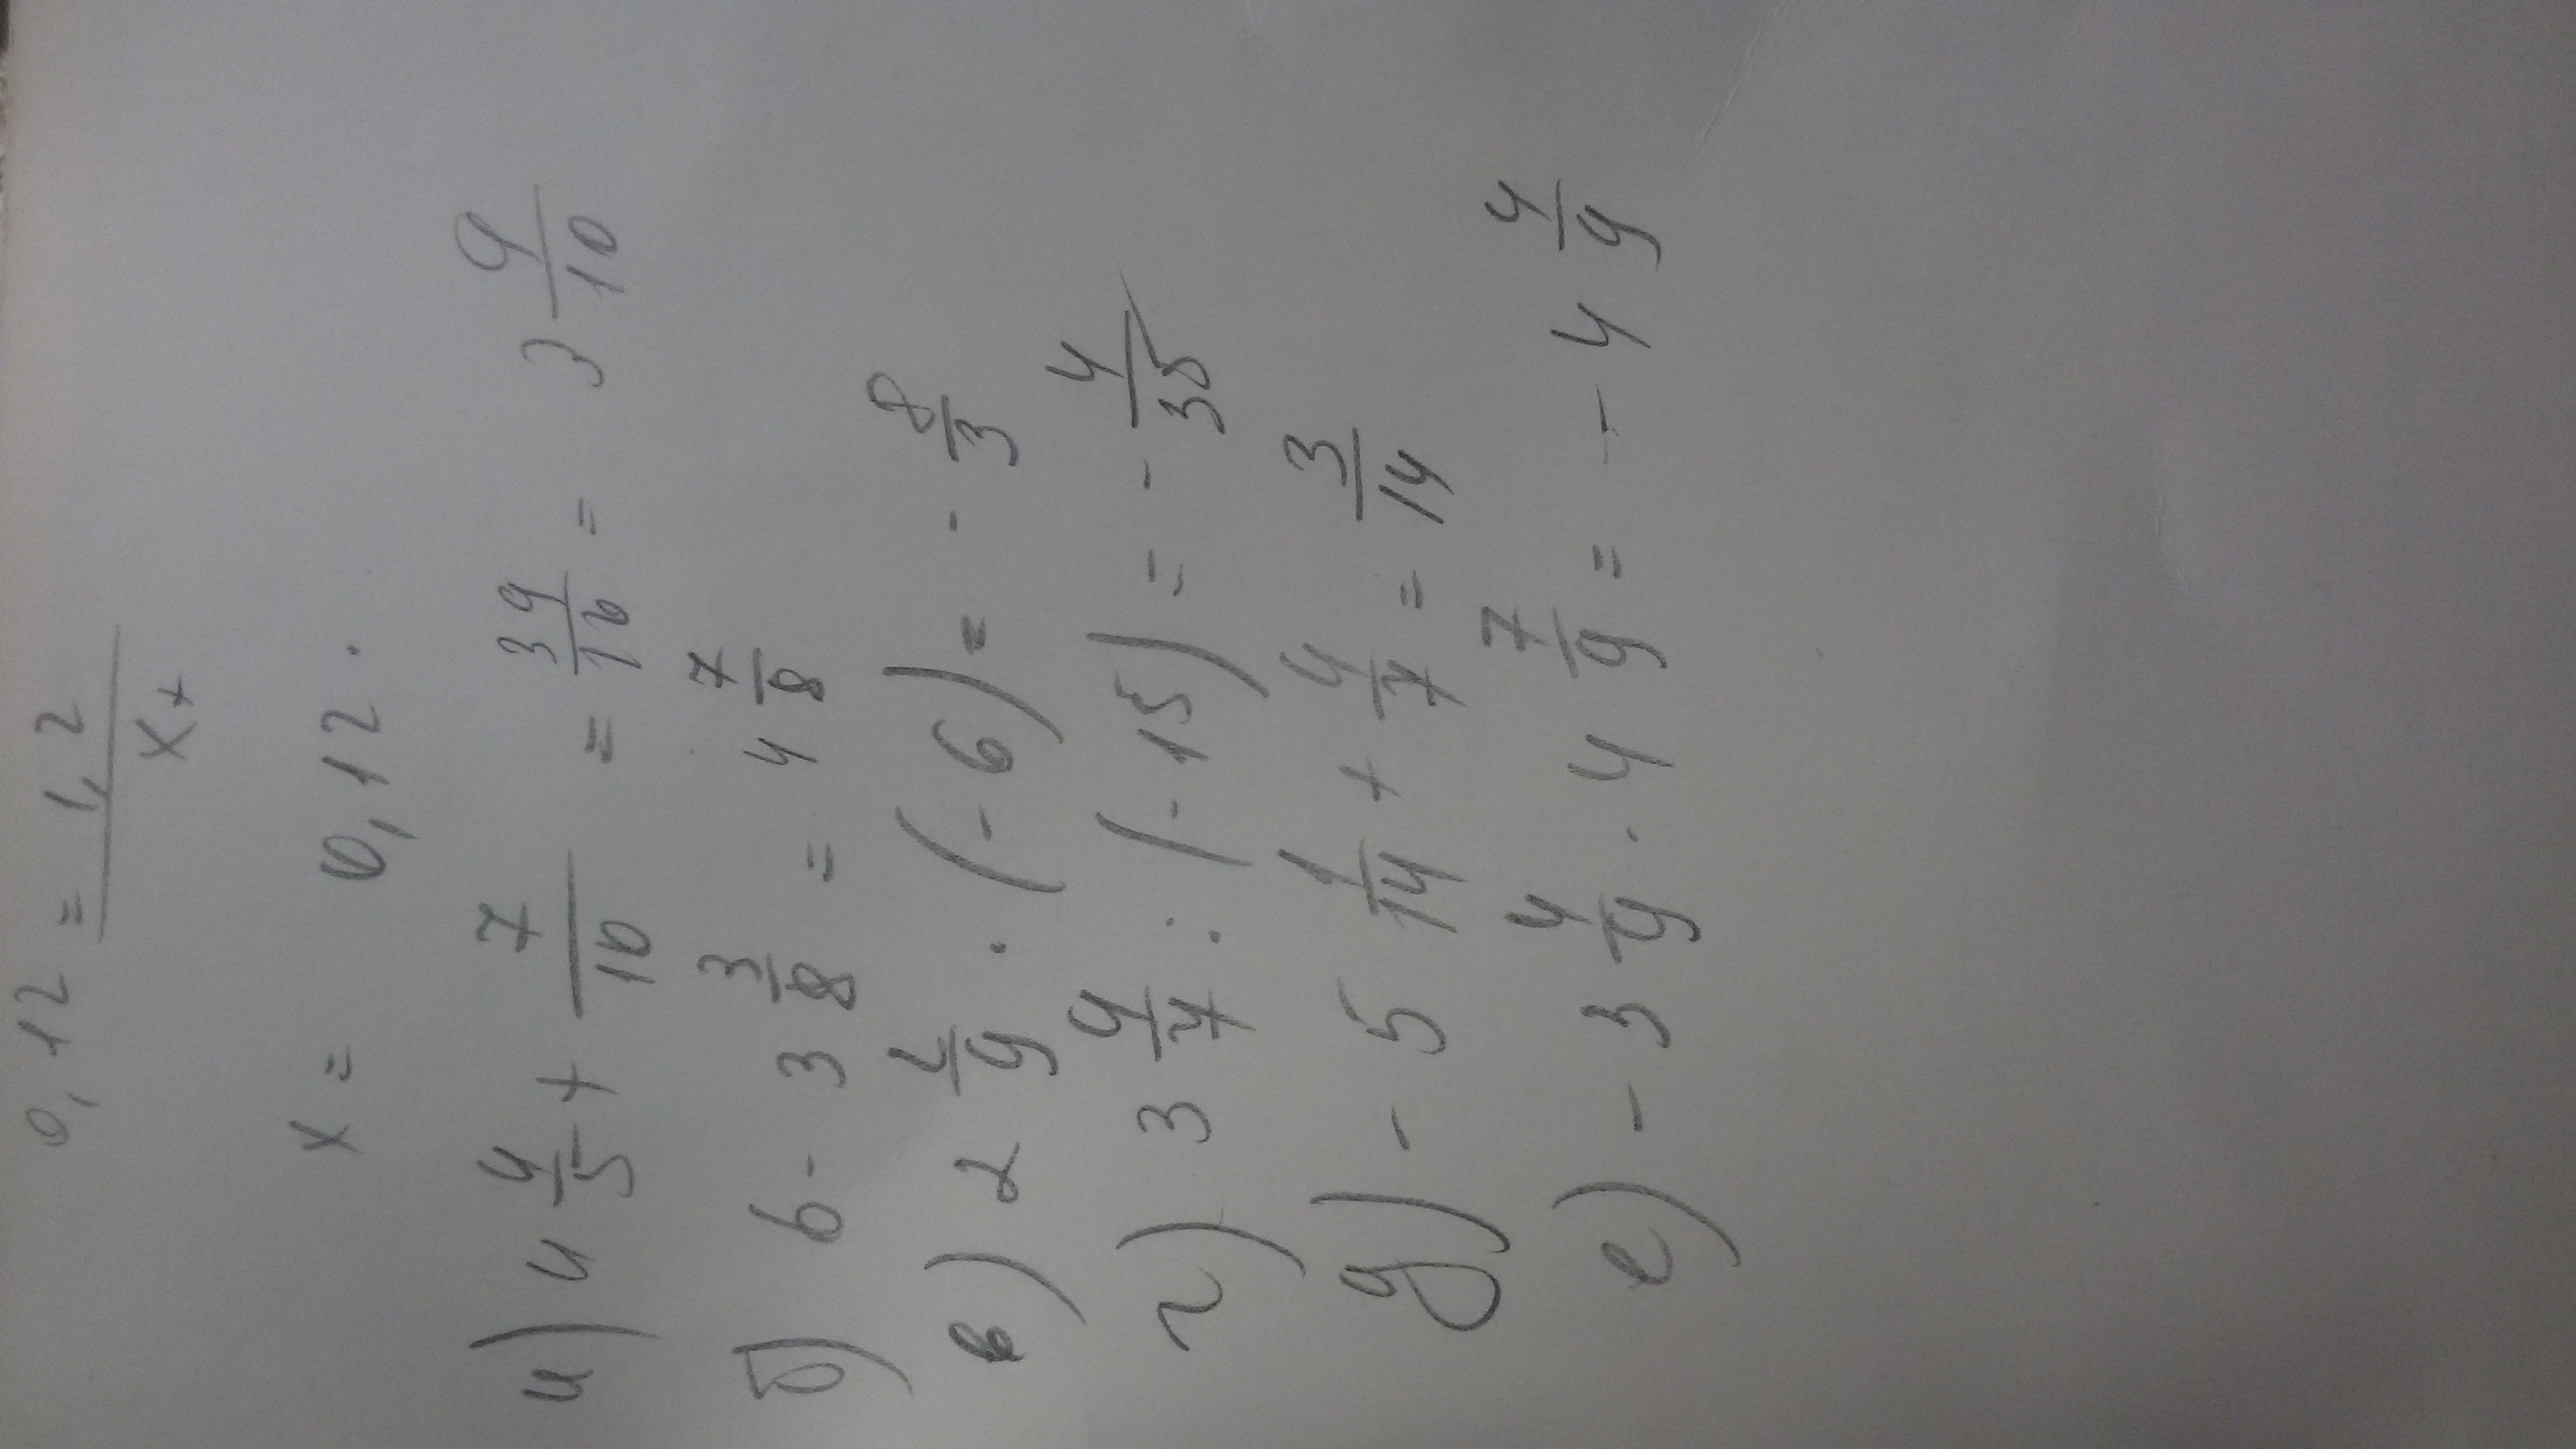 0,12 = 1,2
x+
x = 0,12 .
4) 4 4/5 + 7/10 = 39/10 = 3 9/10
б) 6 - 3 3/8 = 4 7/8
в) 2 2/9 · (-6) = - 8/3
г) 3 4/7 : (-15) = - 4/35
д) - 5 1/14 + 4/7 = 3/14
е) - 3 4/9 · 4 7/9 = - 4 4/9